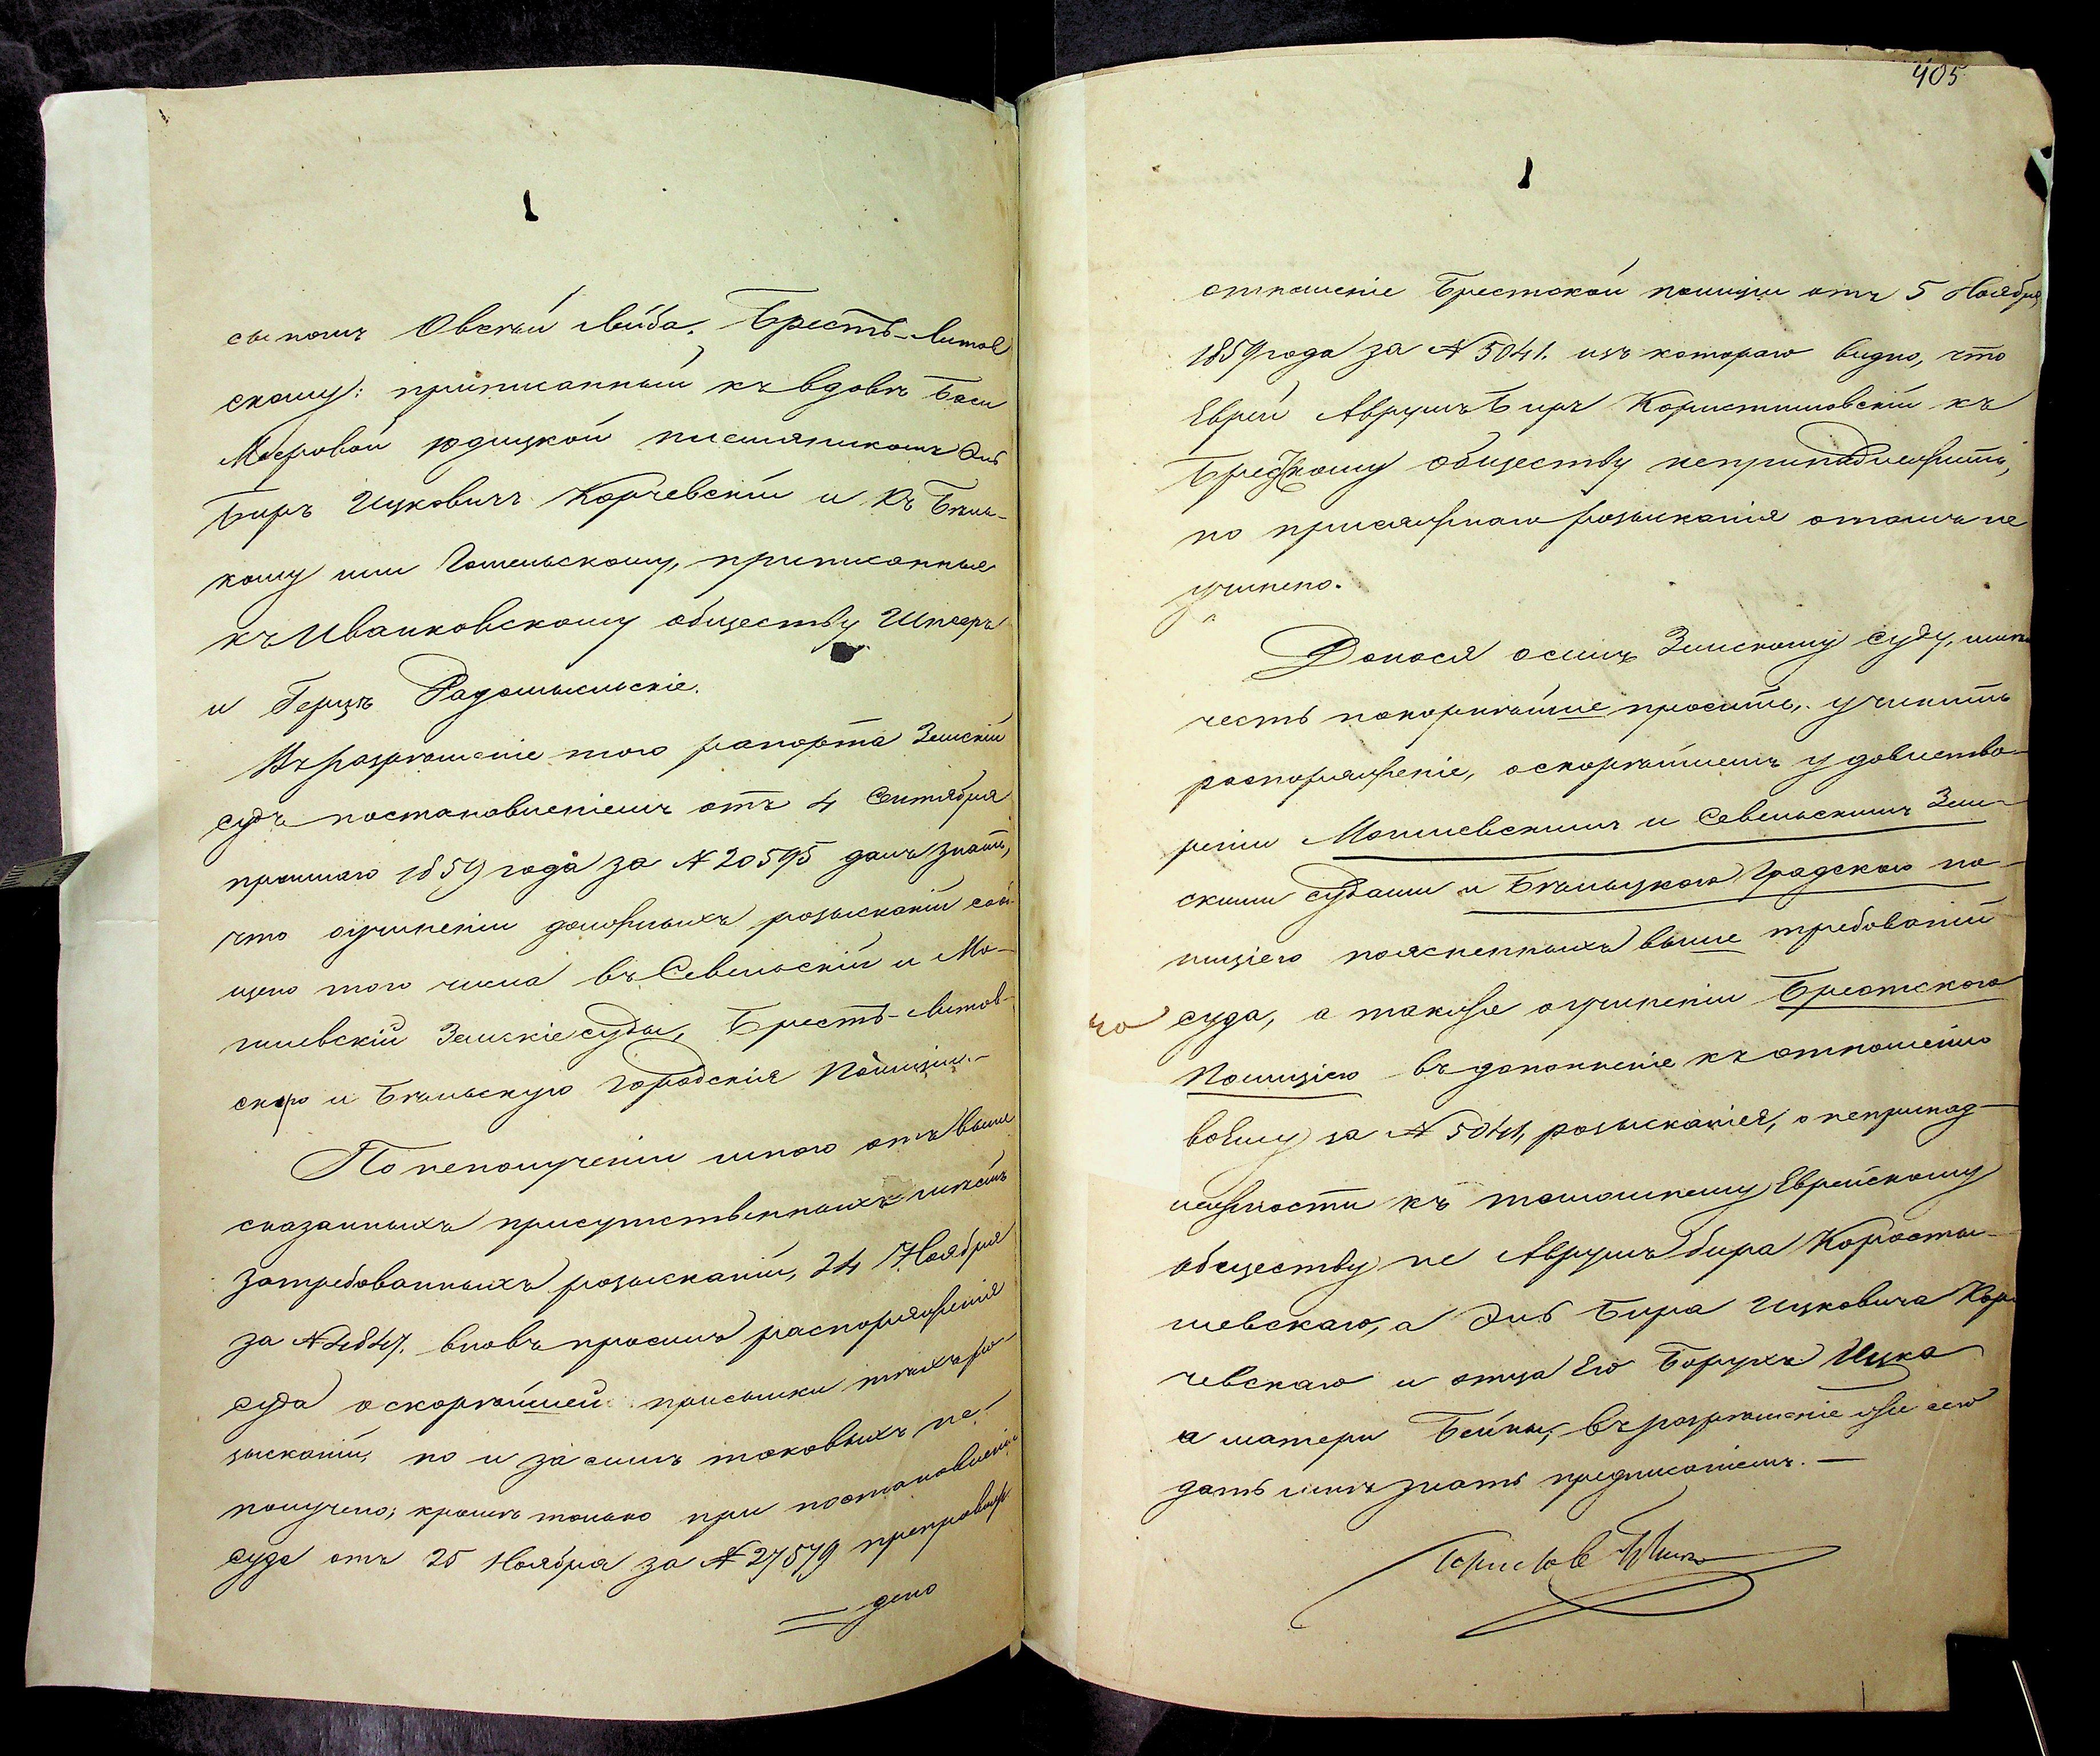 сыномъ Овсѣй Лейба. Брестъ-Литов
скому: приписанный къ вдовѣ Баси
Мееровой Юдицкой племянникомъ Эль
Беръ Ицковичъ Корчевскій и къ Бѣль-
кому или Гомельскому, приписанные
къ Иванковскому обществу Шлееръ
и Герцъ Радомысльскіе.
Въ разрешеніе того рапорта Земскій
судъ постановленіемъ отъ 4 Сентября
прошлаго 1859 года за № 20595 далъ знать,
что о учиненіи должныхъ розысканій сооб
щено того числа въ Севельскій и Мо-
гилевскій Земскіе суды, Брестъ-Литов-
скую и Бѣльскую Городскія Полиціи.-
По неполученіи мною отъ выше
сказанныхъ присутственныхъ мѣстъ
затребованныхъ розысканій, 24 Ноября
за № 4847. вновь просилъ распоряженія
суда о скорѣйшей присылки тѣхъ ро-
зысканій, но и за симъ таковыхъ не-
получено; кромѣ только при постановленіи
суда отъ 25 Ноября за № 27579 препровож
дено
405
отношеніе Брестской полиціи отъ 5 Ноября
1859 года за № 5041. изъ котораго видно, что
Еврей Аврумъ Беръ Коростишовскій къ
Брестскому обществу непринадлежитъ,
но присяжнаго розысканія о томъ не
учинено.
Донося о семъ Земскому суду, имѣю
честь покорнѣйше просить, учинить
распоряженіе, о скорѣйшемъ удовлетво-
реніи Могилевскимъ и Севельскимъ Зем-
скими судами и Бѣльцкою Градскою по-
лиціею поясненныхъ выше требованій
суда, а также о учиненіи Брестскою
Полиціею въ дополненіе къ отношенію
своему за № 5041, розысканія, о непринад-
лежности къ тамошнему Еврейскому
обществу не Аврумъ Бера Коросты-
шевскаго, а Эль Бера Ицковича Кор
чевскаго и отца Его Борухъ Ицка
а матери Бейлы, въ разрешеніе же сего
дать мнѣ знать предписаніемъ. —